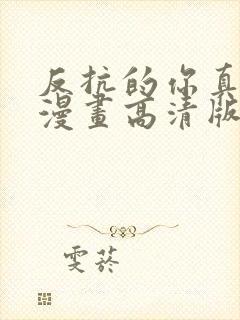 反抗的你真
漫畫高清版
雯菸